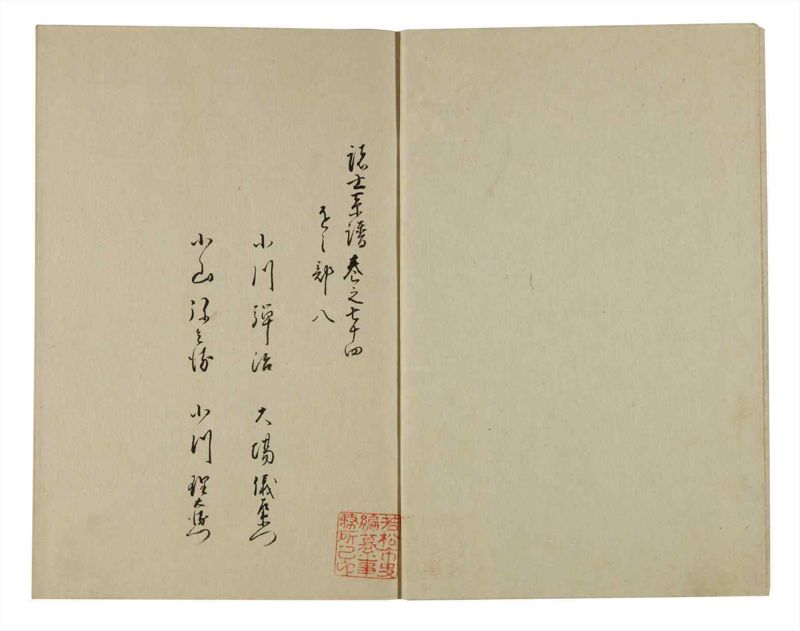 諸士系譜 巻之七十四
をノ部 八
小川弾治 大場儀左衛門
小山弥兵衛 小川理左衛門
若松市史
編纂事
務所之